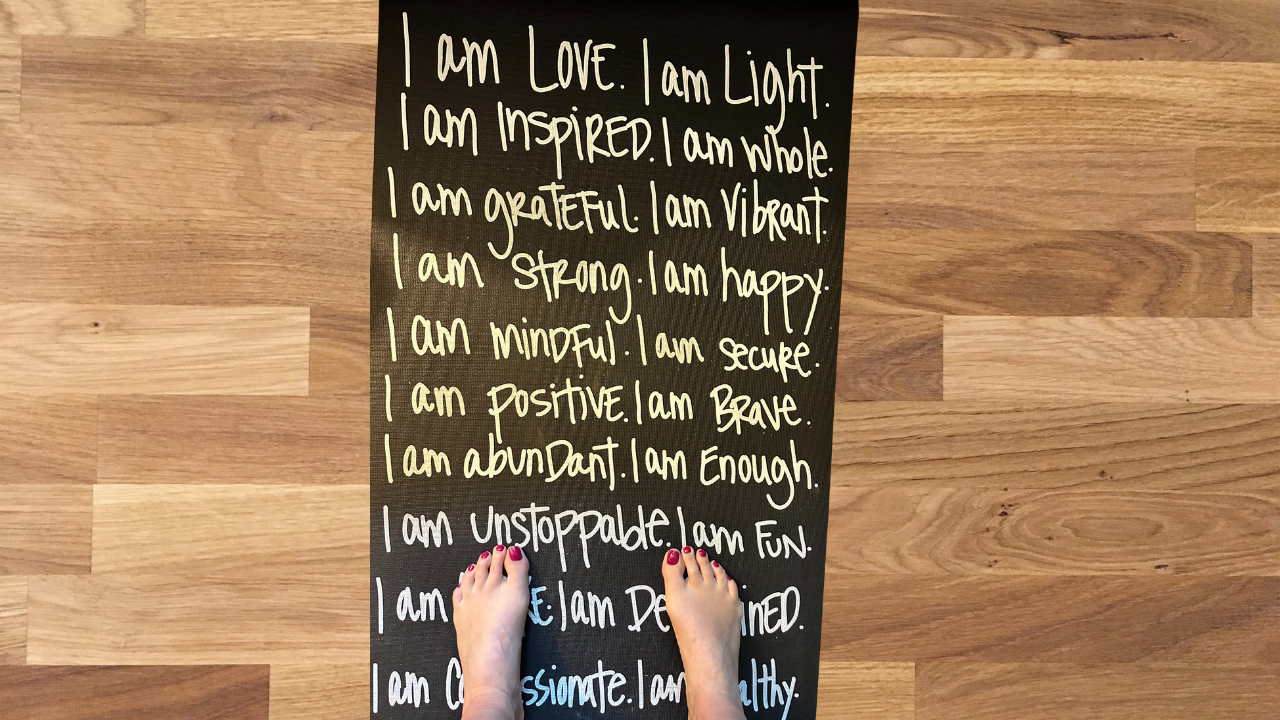 I am LOVE. I am Light.
I am InspIRED. I am whole.
I am gRATEFul. I am VibRanT.
I am STRong. I am happy.
I am minDFul. I am secuRe.
I am posiTivE. I am BRAvE.
I am abunDanT. I am Enough.
I am UnsToppable. I am FuN.
I am I am
I am I am